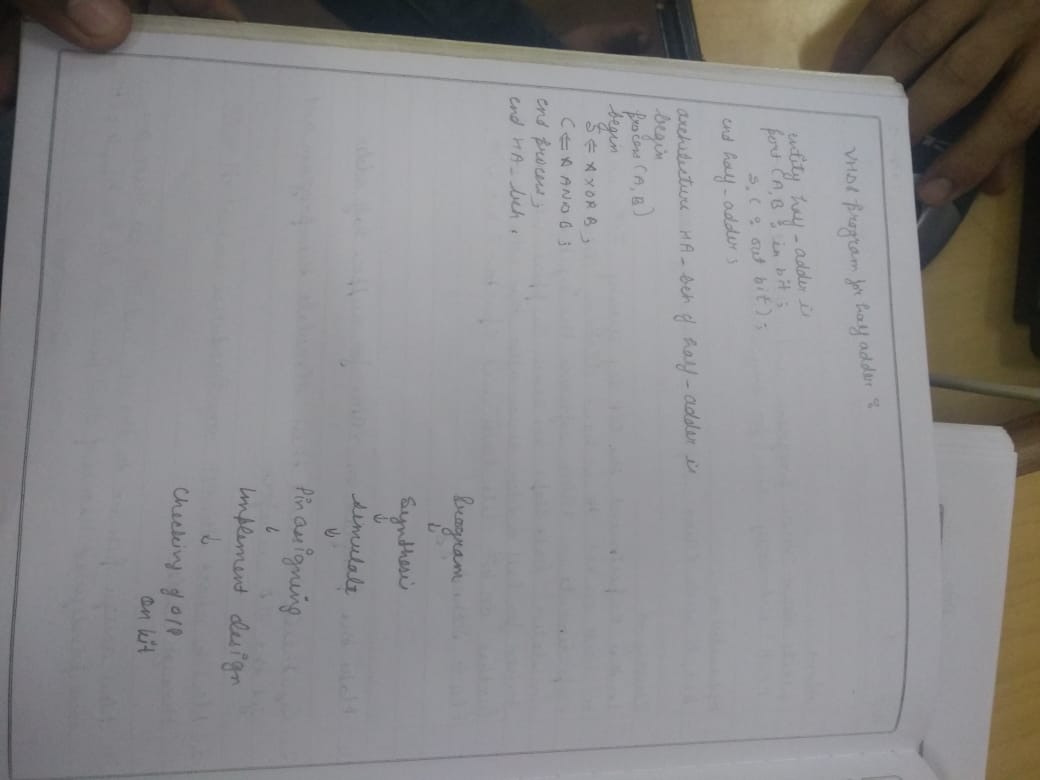 VHDL program for half adder :
entity half-adder is
port (A, B : in bit ;
S, C : out bit) ;
end half-adder ;
architecture HA-beh of half-adder is
begin
process (A, B)
begin
S <= A XOR B ;
C <= A AND B ;
end process ;
end HA-beh .
Program
↓
Synthesis
↓
simulate
↓
Pin assigning
↓
Implement design
↓
Checking of O/P
on kit